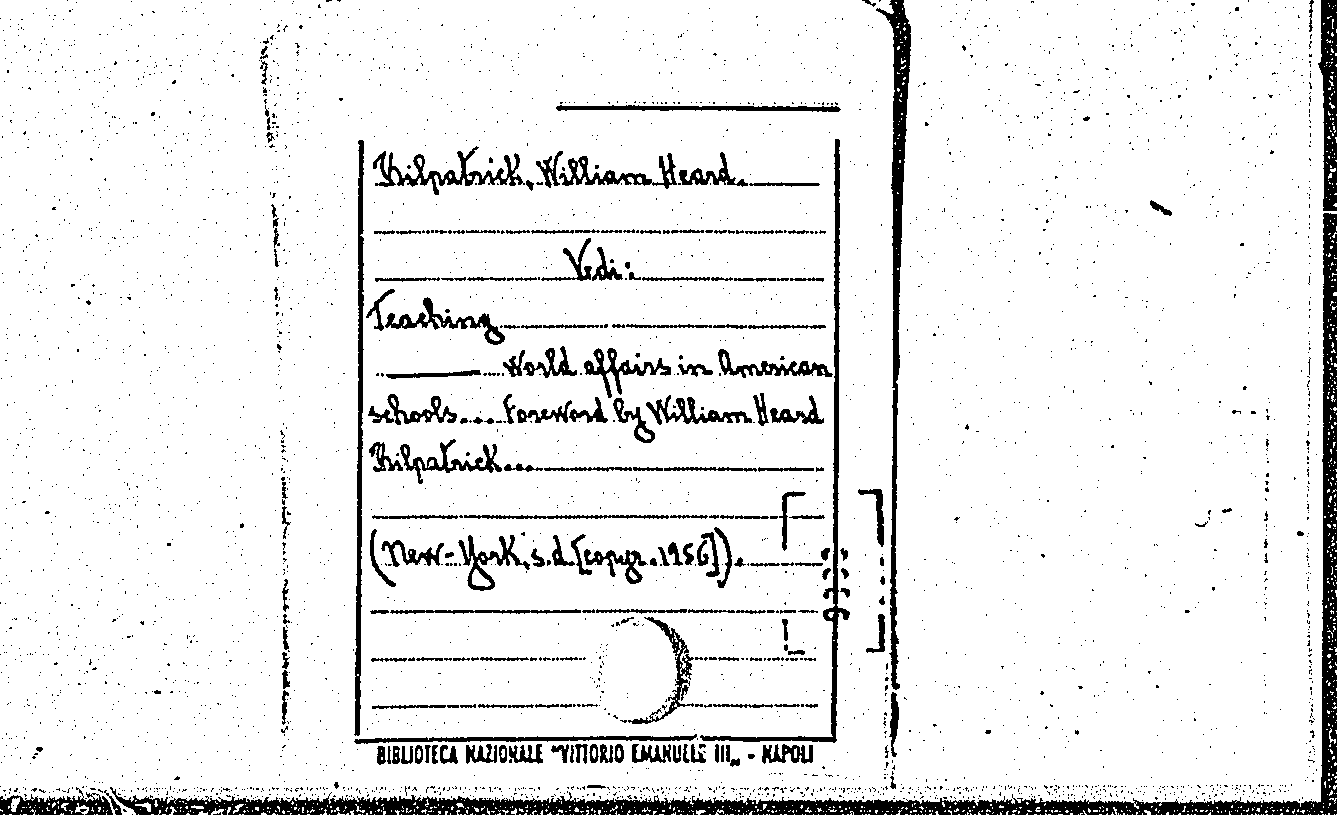 Kilpatrick, William Heard.
Vedi:
Teaching
World affairs in American
schools... Foreword by William Heard
Kilpatrick...
(New-York, s.d. [copyr. 1956]).
BIBLIOTECA NAZIONALE "VITTORIO EMANUELE III„ - NAPOLI